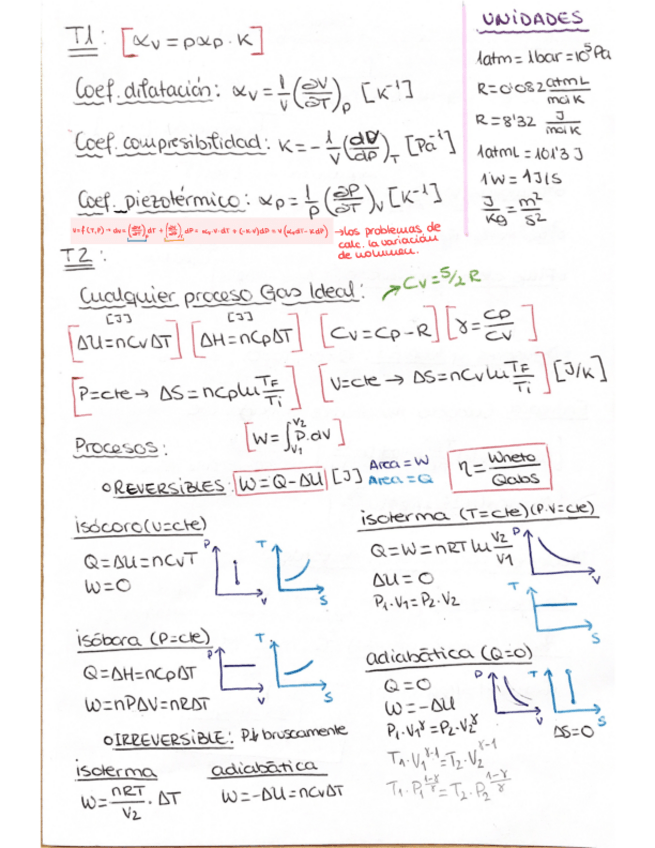 T1: [αv = pαp · K]
Coef. dilatación: αv = 1/V (∂V/∂T)p [K⁻¹]
Coef. compresibilidad: K = - 1/V (dV/dP)T [Pa⁻¹]
Coef. piezotérmico: αp = 1/P (∂P/∂T)v [K⁻¹]
→ los problemas de
calc. la variación
de volumen.
UNIDADES
1atm = 1bar = 10⁵ Pa
R = 0'082 atm L / mol K
R = 8'32 J / mol K
1atmL = 101'3 J
1W = 1J/s
J/Kg = m²/s²
T2:
Cualquier proceso Gas Ideal: → Cv = 5/2 R
[J] [J]
[ΔU = nCvΔT] [ΔH = nCpΔT] [Cv = Cp - R] [γ = Cp/Cv]
[P = cte → ΔS = nCp ln TF/Ti] [V = cte → ΔS = nCv ln TF/Ti] [J/K]
Procesos: [W = ∫V1 V2 P·dV]
o REVERSIBLES: W = Q - ΔU [J] Area = W
Area = Q
η = Wneto/Qabs
isócoro (V = cte)
Q = ΔU = nCvT
W = 0
P V
T S
isoterma (T = cte) (P·V = cte)
Q = W = nRT ln V2/V1
ΔU = 0
P1·V1 = P2·V2
P V
T S
isóbara (P = cte)
Q = ΔH = nCpΔT
W = nPΔV = nRΔT
P V
T S
adiabática (Q = 0)
Q = 0
W = -ΔU
P1·V1^γ = P2·V2^γ
T1·V1^γ-1 = T2·V2^γ-1
T1·P1^1-γ/γ = T2·P2^1-γ/γ
P V
T S
ΔS = 0
o IRREVERSIBLE: P↓ bruscamente
isoterma
W = nRT/V2 · ΔT
adiabática
W = -ΔU = nCvΔT